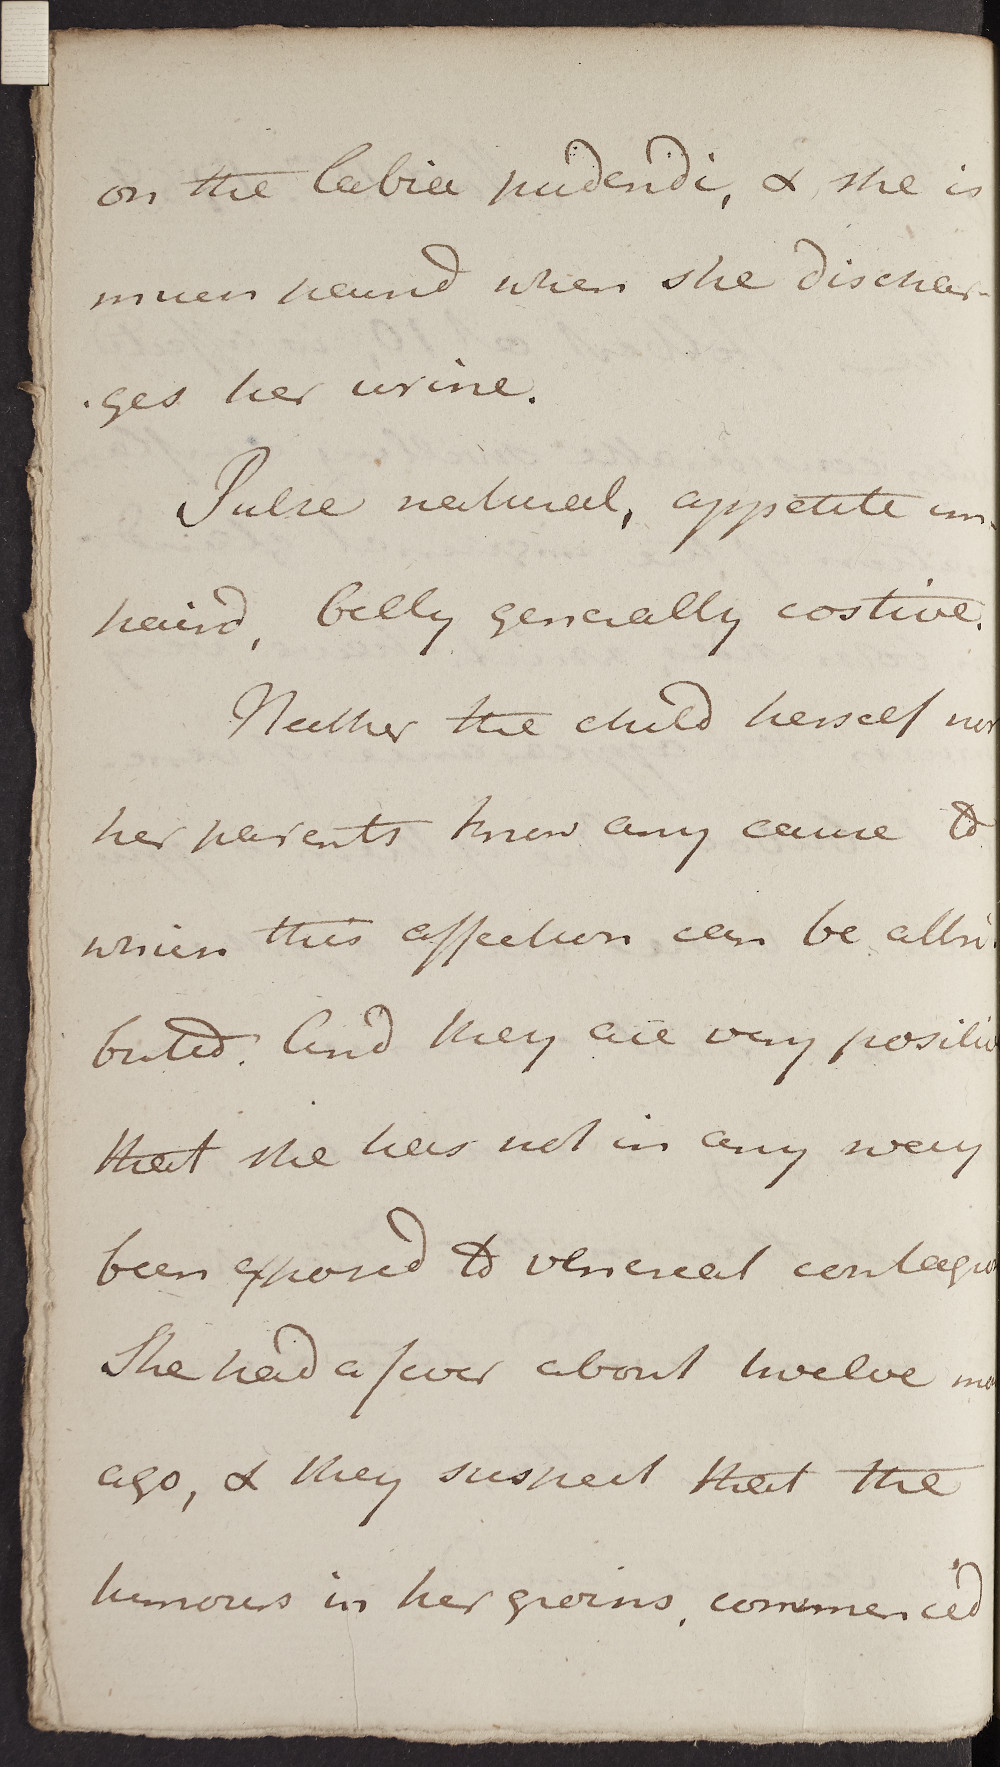 on the labia pudendi, & she is
much paind when she dischar-
-ges her urine.
Pulse natural, appetite im-
paird, belly generally costive.
Neither the child herself nor
her parents know any cause to
which this affection can be attri-
buted. And they are very positive
that she has not in any way
been exposed to venereal contagion
She had a fever about twelve mo
ago, & they suspect that the
tumours in her groins, commenc'd